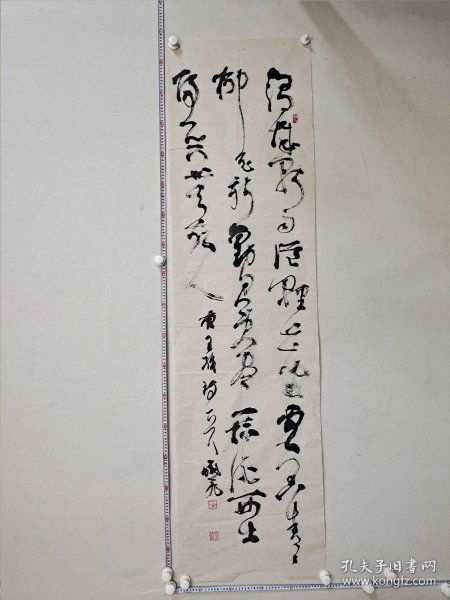 渭城朝雨浥輕塵客舍青々
柳色新勸君更盡一杯酒西出
陽關無故人
唐王維詩
孔夫子旧书网
www.kongfz.com